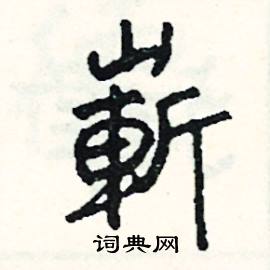 嶄
词典网